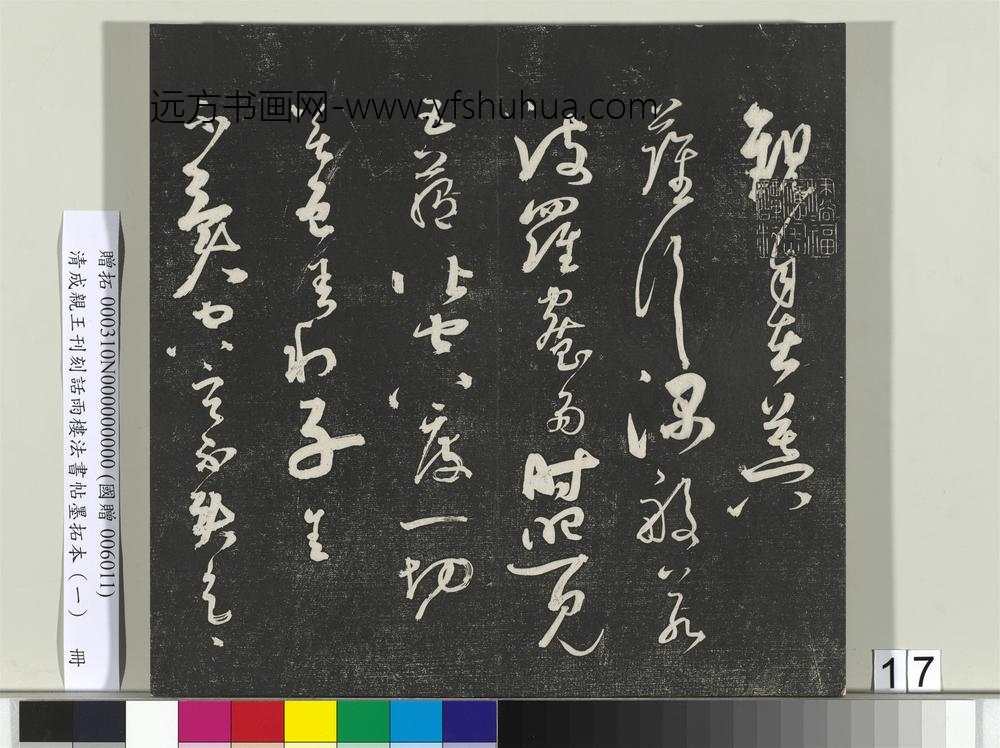 远方书画网-www.yfshuhua.com
觀自在菩
薩行深般若
波羅蜜多時照見
五蘊皆空度一切
苦厄舍利子色
不異空不異色
贈拓 000310N000000000 (國贈 006011)
清成親王刊刻話雨樓法書帖墨拓本(一) 冊
17